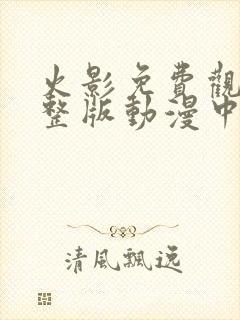 火影免費觀
整版動漫中
清風飄逸